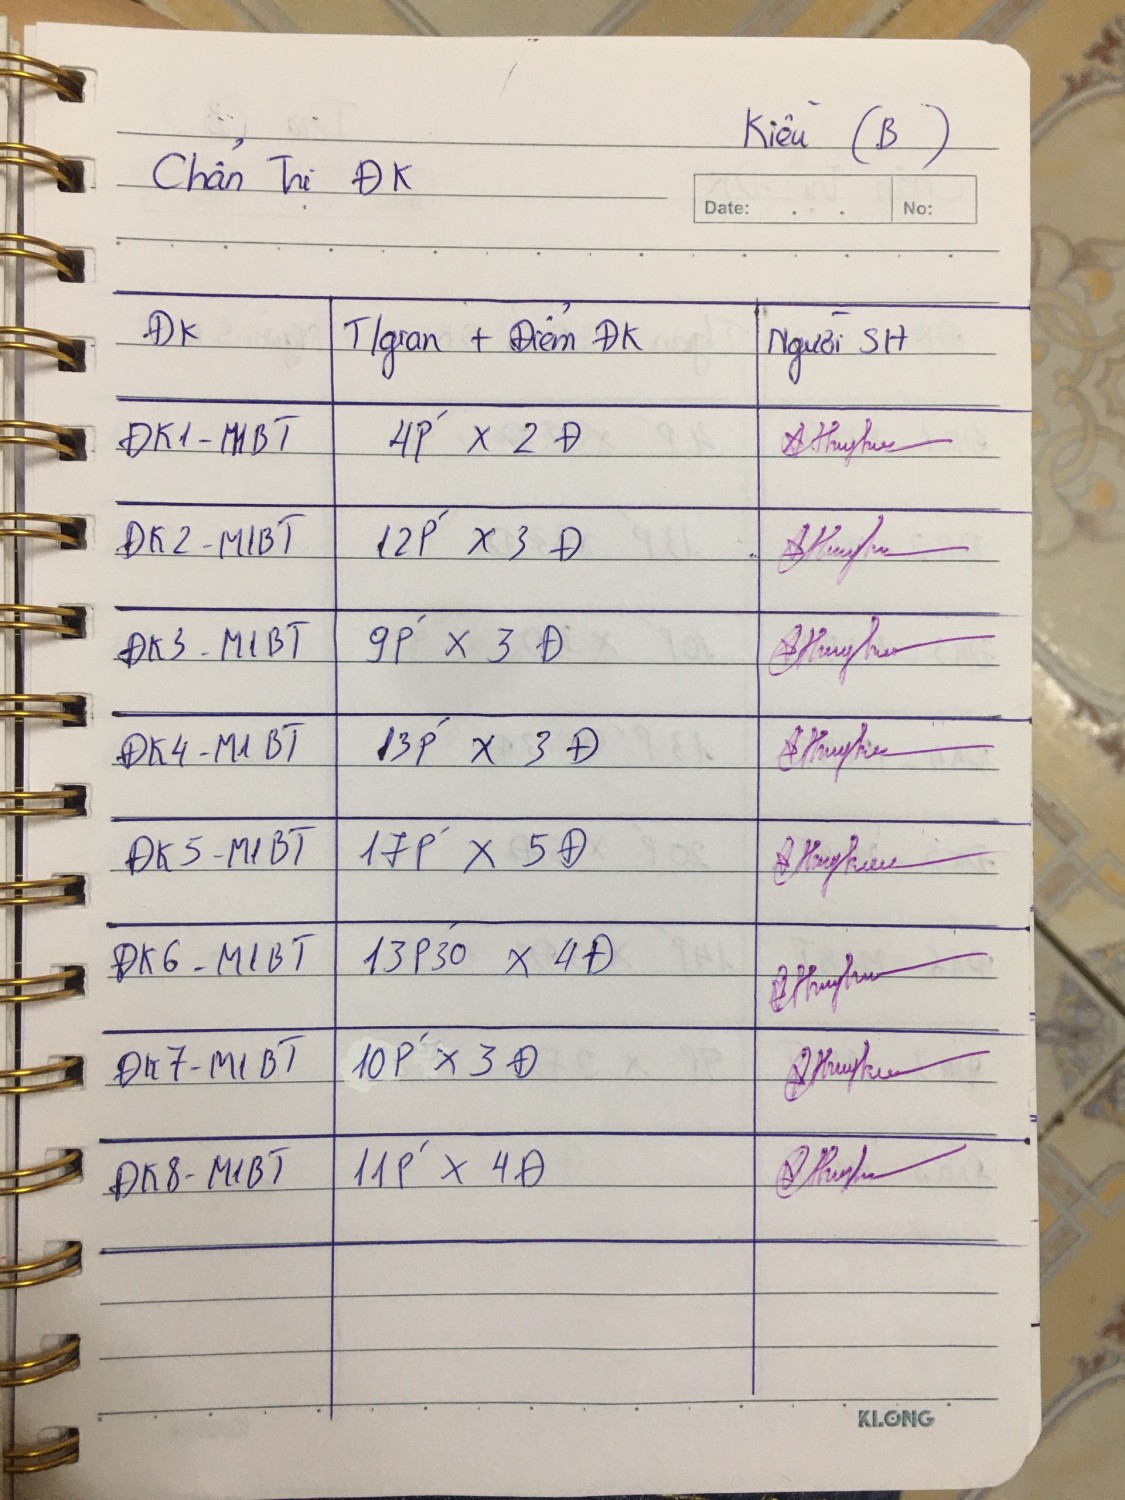 Kiều (B)
Chẩn Trị ĐK
Date: No:
ĐK T/gian + Điểm ĐK Người SH
ĐK1-M1BT 4P' x 2 Đ
ĐK2-M1BT 12P' x 3 Đ
ĐK3-M1BT 9P' x 3 Đ
ĐK4-M1BT 13P' x 3 Đ
ĐK5-M1BT 17P' x 5 Đ
ĐK6-M1BT 13P30 x 4Đ
ĐK7-M1BT 10P' x 3 Đ
ĐK8-M1BT 11P' x 4Đ
KLONG